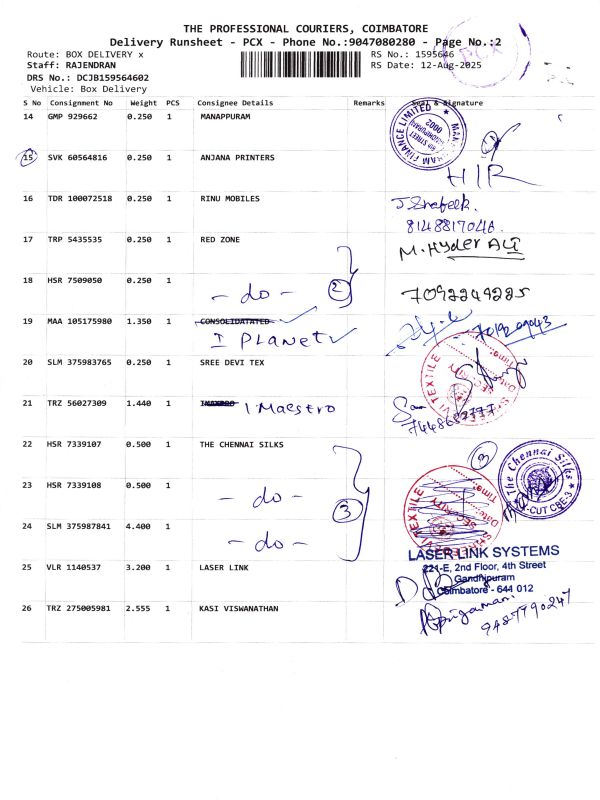 THE PROFESSIONAL COURIERS, COIMBATORE
Delivery Runsheet - PCX - Phone No.:9047080280 - Page No.:2
Route: BOX DELIVERY x RS No.: 1595646
Staff: RAJENDRAN RS Date: 12-Aug-2025
DRS No.: DCJB159564602
Vehicle: Box Delivery
PCX
S No Consignment No Weight PCS Consignee Details Remarks Seal & Signature
14 GMP 929662 0.250 1 MANAPPURAM
FINANCE LIMITED
15 SVK 60564816 0.250 1 ANJANA PRINTERS
H/R
16 TDR 100072518 0.250 1 RINU MOBILES
8148817048
17 TRP 5435535 0.250 1 RED ZONE
M. Hyder ALI
18 HSR 7509050 0.250 1 - do - 2
7092249225
19 MAA 105175980 1.350 1 CONSOLIDATATED
I PLANET
20 SLM 375983765 0.250 1 SREE DEVI TEX
SREE DEVI TEXTILE
SECURITY
Date:
Time:
21 TRZ 56027309 1.440 1 I Maestro
22 HSR 7339107 0.500 1 THE CHENNAI SILKS
3
The Chennai Silks
X-CUT CBE-3
23 HSR 7339108 0.500 1 - do - 3
SREE DEVI TEXTILE
SECURITY
Date:
Time:
24 SLM 375987841 4.400 1 - do -
LASER LINK SYSTEMS
25 VLR 1140537 3.200 1 LASER LINK
221-E, 2nd Floor, 4th Street
Gandhipuram
Coimbatore - 644 012
26 TRZ 275005981 2.555 1 KASI VISWANATHAN
9487790247